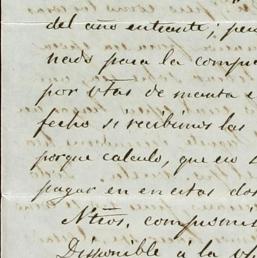 del año entrante; per
nado para la compo
por vtas de manta e
fecho si recibimos las
porque calculo, que en
pagar en estas dos
Ntros, compromis
Disponible á la